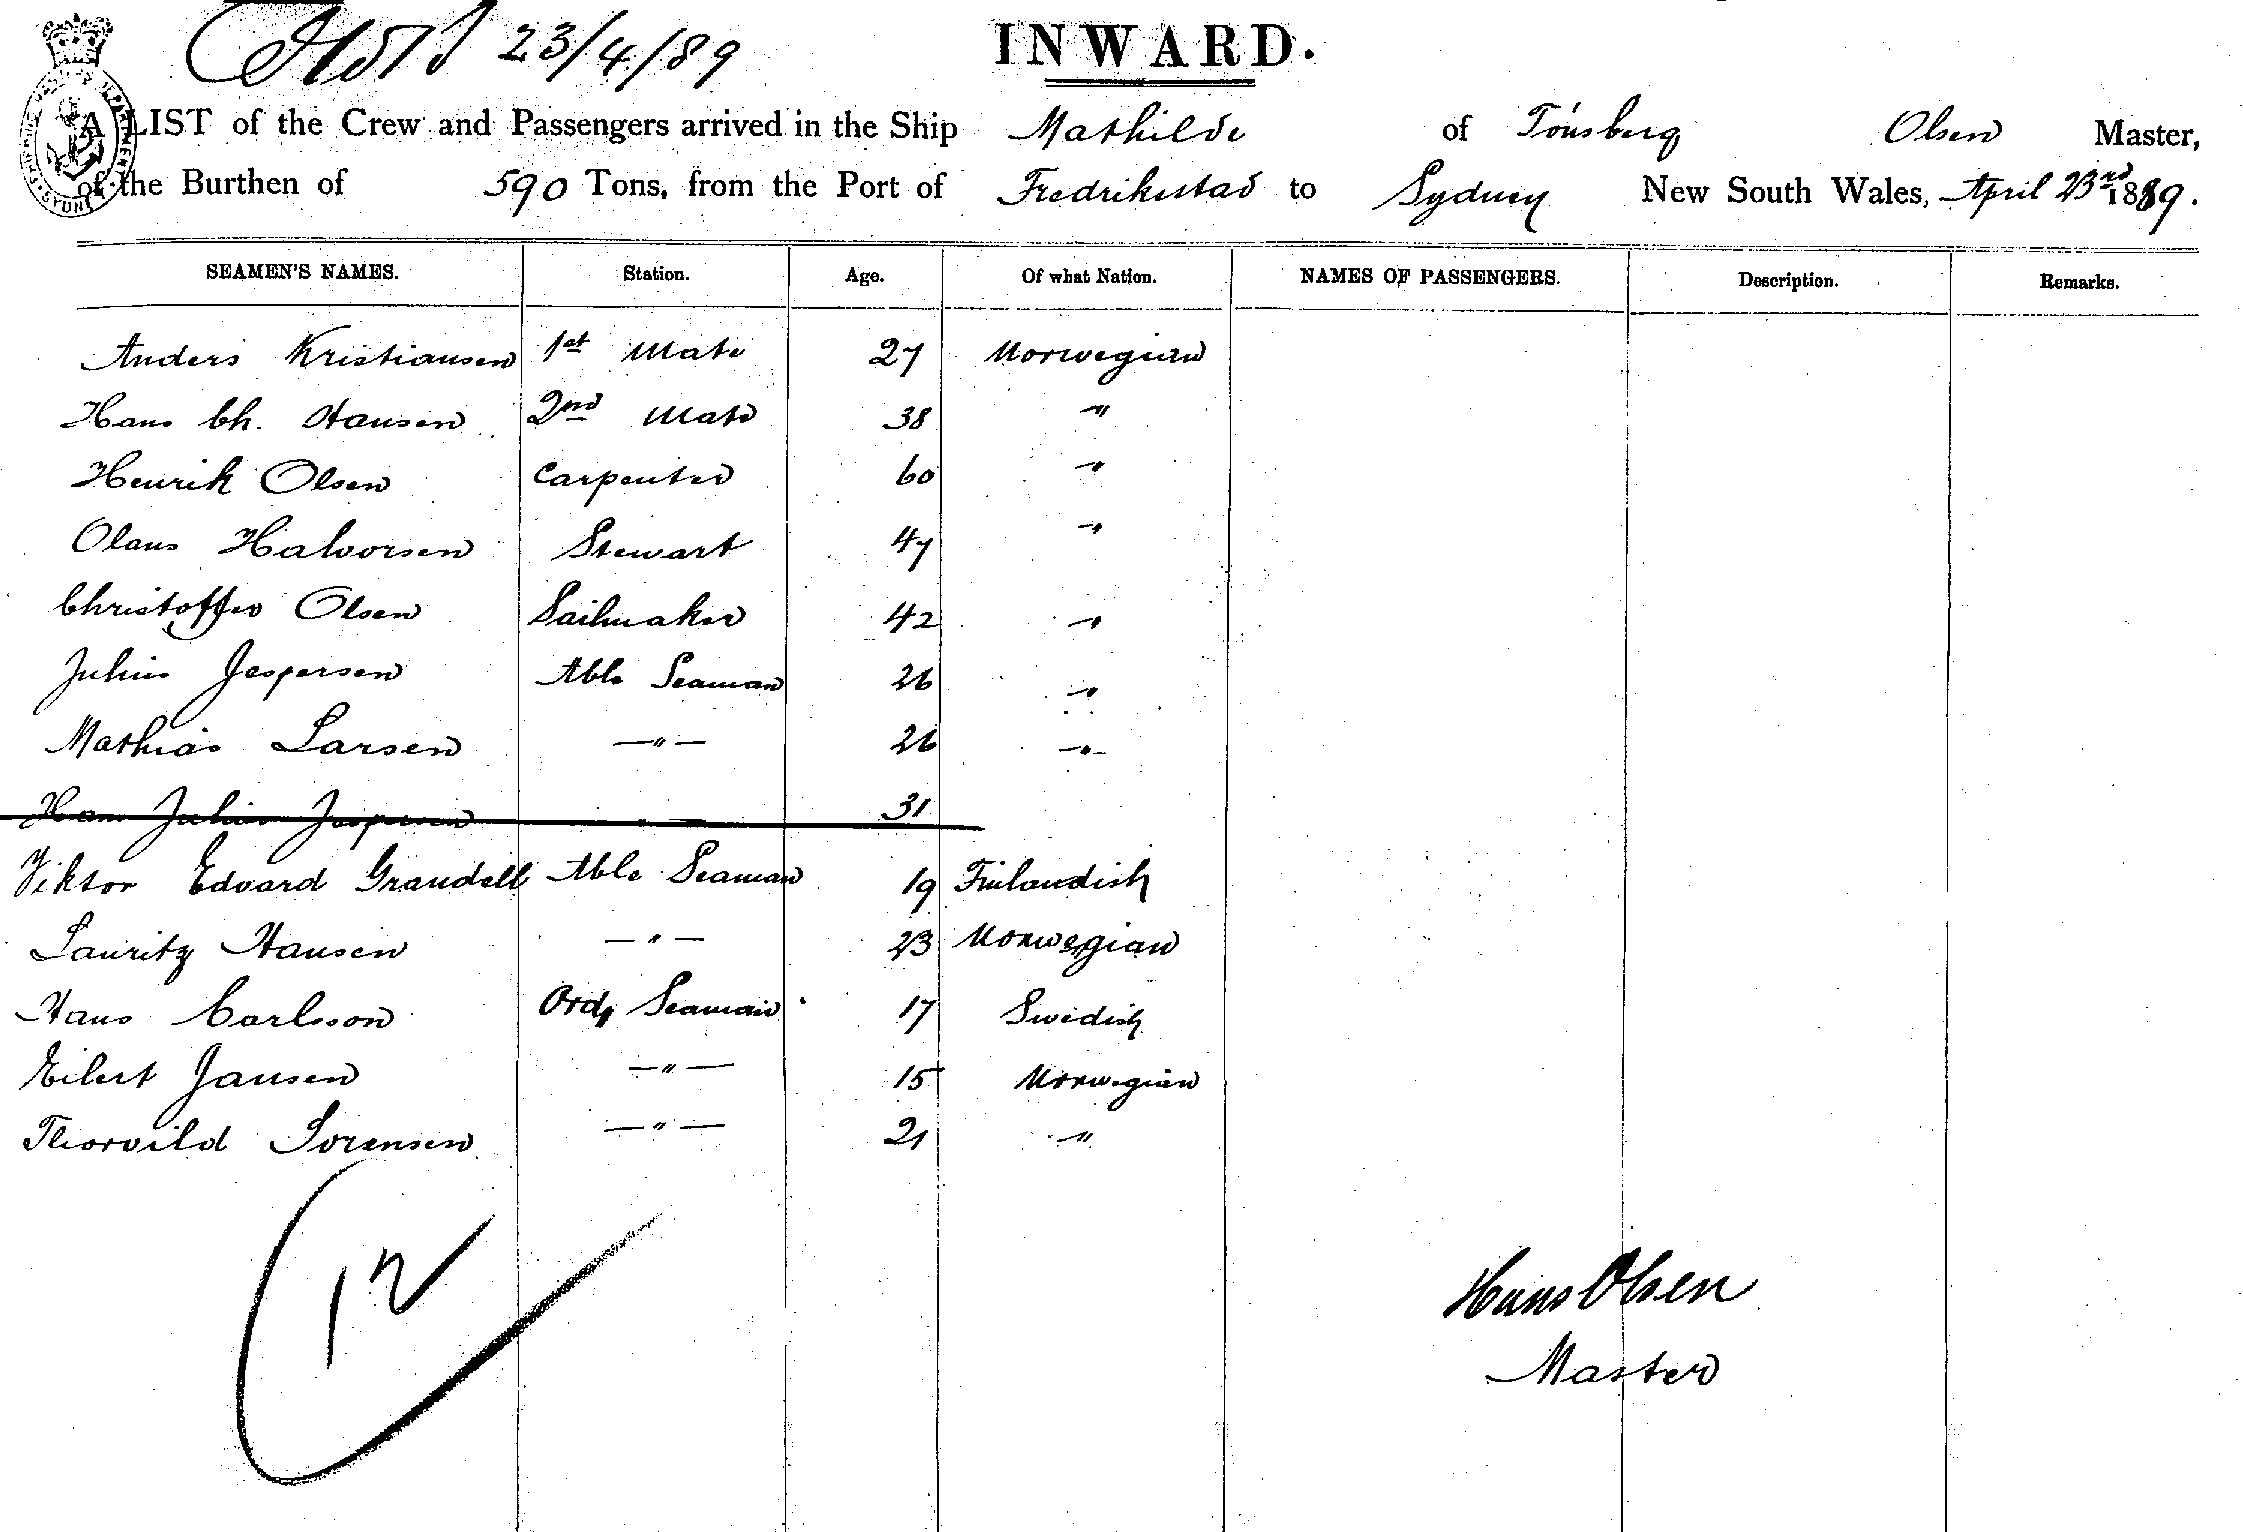 23/4/89
INWARD.
A LIST of the Crew and Passengers arrived in the Ship Mathilde of Tönsberg Olsen Master,
of the Burthen of 590 Tons, from the Port of Fredrikstad to Sydney New South Wales, April 23rd 1889.
SEAMEN'S NAMES. Station. Age. Of what Nation. NAMES OF PASSENGERS. Description. Remarks.
Anders Kristiansen 1st Mate 27 Norwegian
Hans Ch. Hansen 2nd Mate 38 "
Henrik Olsen Carpenter 60 "
Olaus Halvorsen Stewart 47 "
Christoffer Olsen Sailmaker 42 "
Julius Jespersen Able Seaman 26 "
Mathias Larsen —"— 26 "
Hans Julius Jespersen —"— 31
Viktor Edvard Grandell Able Seaman 19 Finlandish
Lauritz Hansen —"— 23 Norwegian
Hans Carlsson Ordy Seaman 17 Swedish
Eilert Jansen —"— 15 Norwegian
Thorvild Sorensen —"— 21 "
12
Hans Olsen
Master